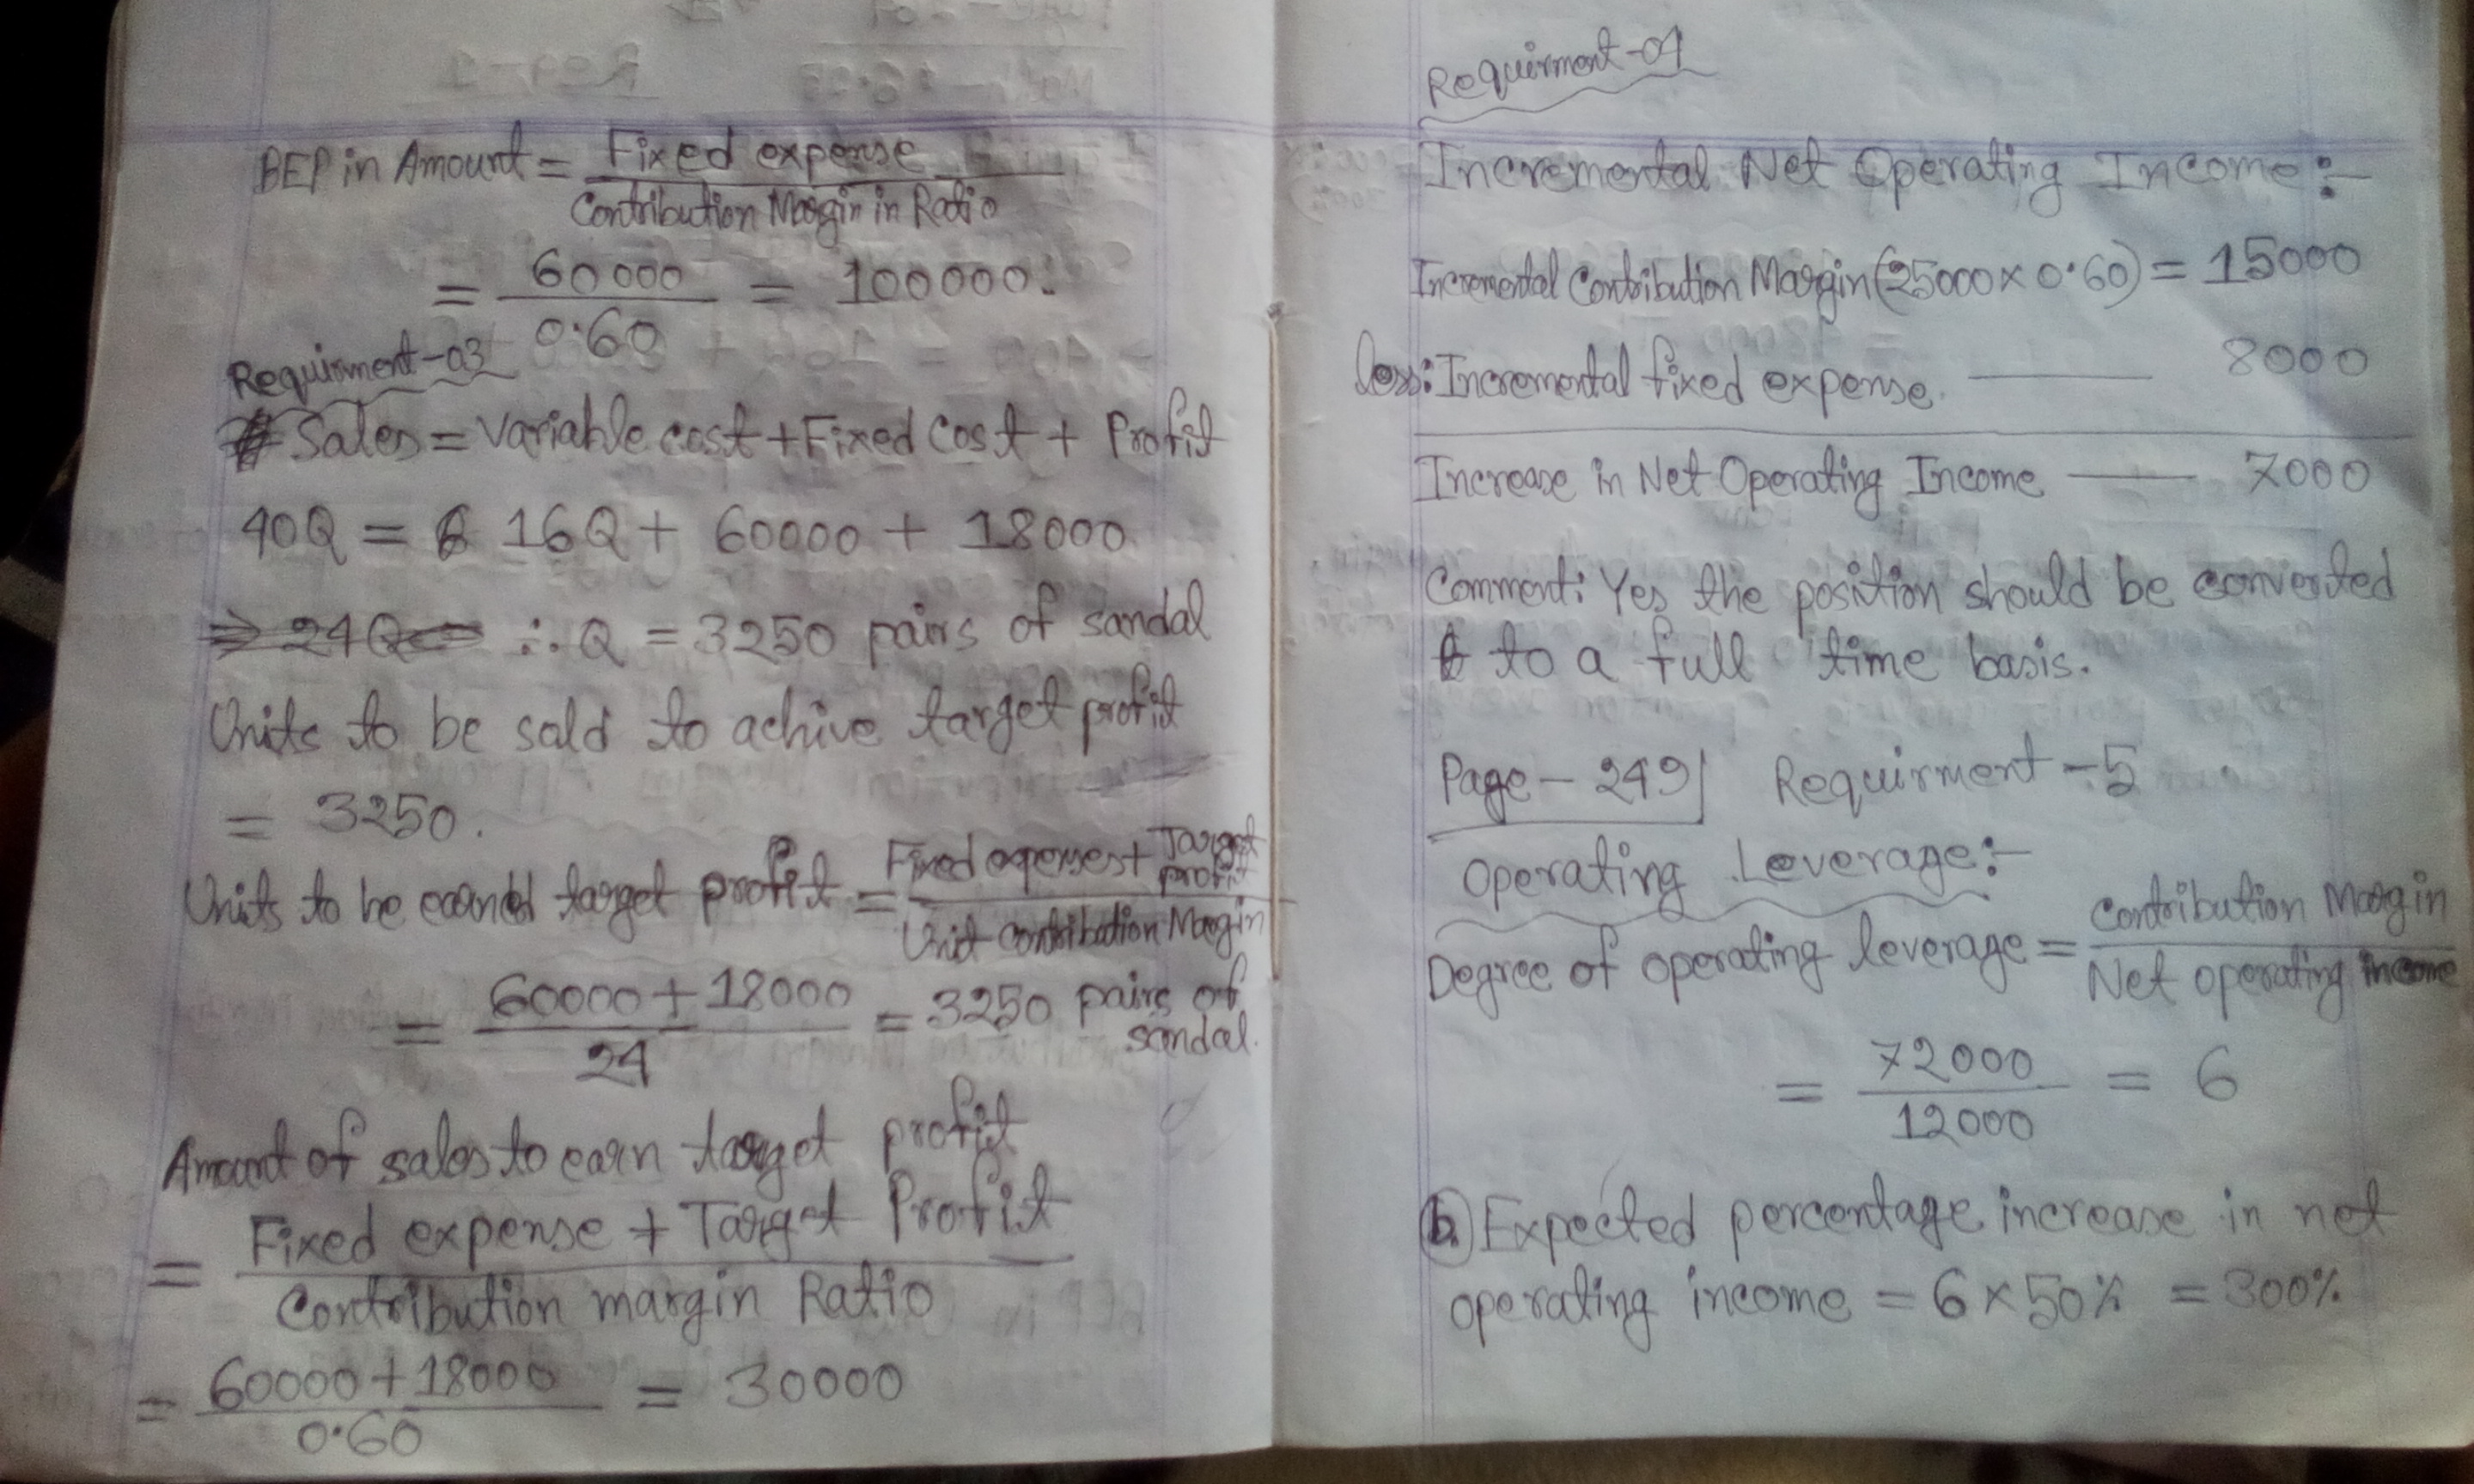 BEP in Amount = Fixed expense
Contribution Margin in Ratio
= 60000 / 0.60 = 100000.
Requirment-03
Sales = Variable cost + Fixed Cost + Profit
40Q = 16Q + 60000 + 18000
⇒ 24Q = ∴ Q = 3250 pairs of sandal
Units to be sold to achive target profit
= 3250.
Units to be earned target profit = Fixed expenses + Target profit
Unit contribution Margin
= 60000 + 18000 / 24 = 3250 pairs of sandal.
Amount of sales to earn target profit
= Fixed expense + Target Profit
Contribution margin Ratio
= 60000 + 18000 / 0.60 = 30000
Requirment-04
Incremental Net Operating Income:-
Incremental Contribution Margin (25000 × 0.60) = 15000
less: Incremental fixed expense. — 8000
Increase in Net Operating Income — 7000
Comment: Yes the position should be converted
to a full time basis.
Page - 249 Requirment - 5
Operating Leverage:-
Degree of operating leverage = Contribution Margin
Net operating income
= 72000 / 12000 = 6
b. Expected percentage increase in net
operating income = 6 × 50% = 300%